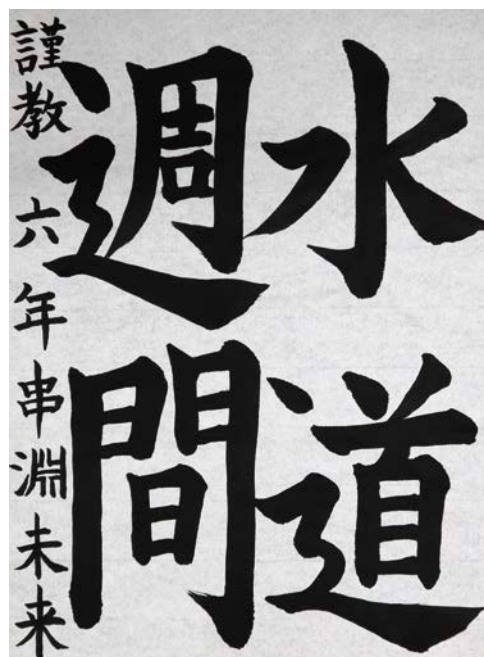 水道
週間
謹教 六年 串淵未来